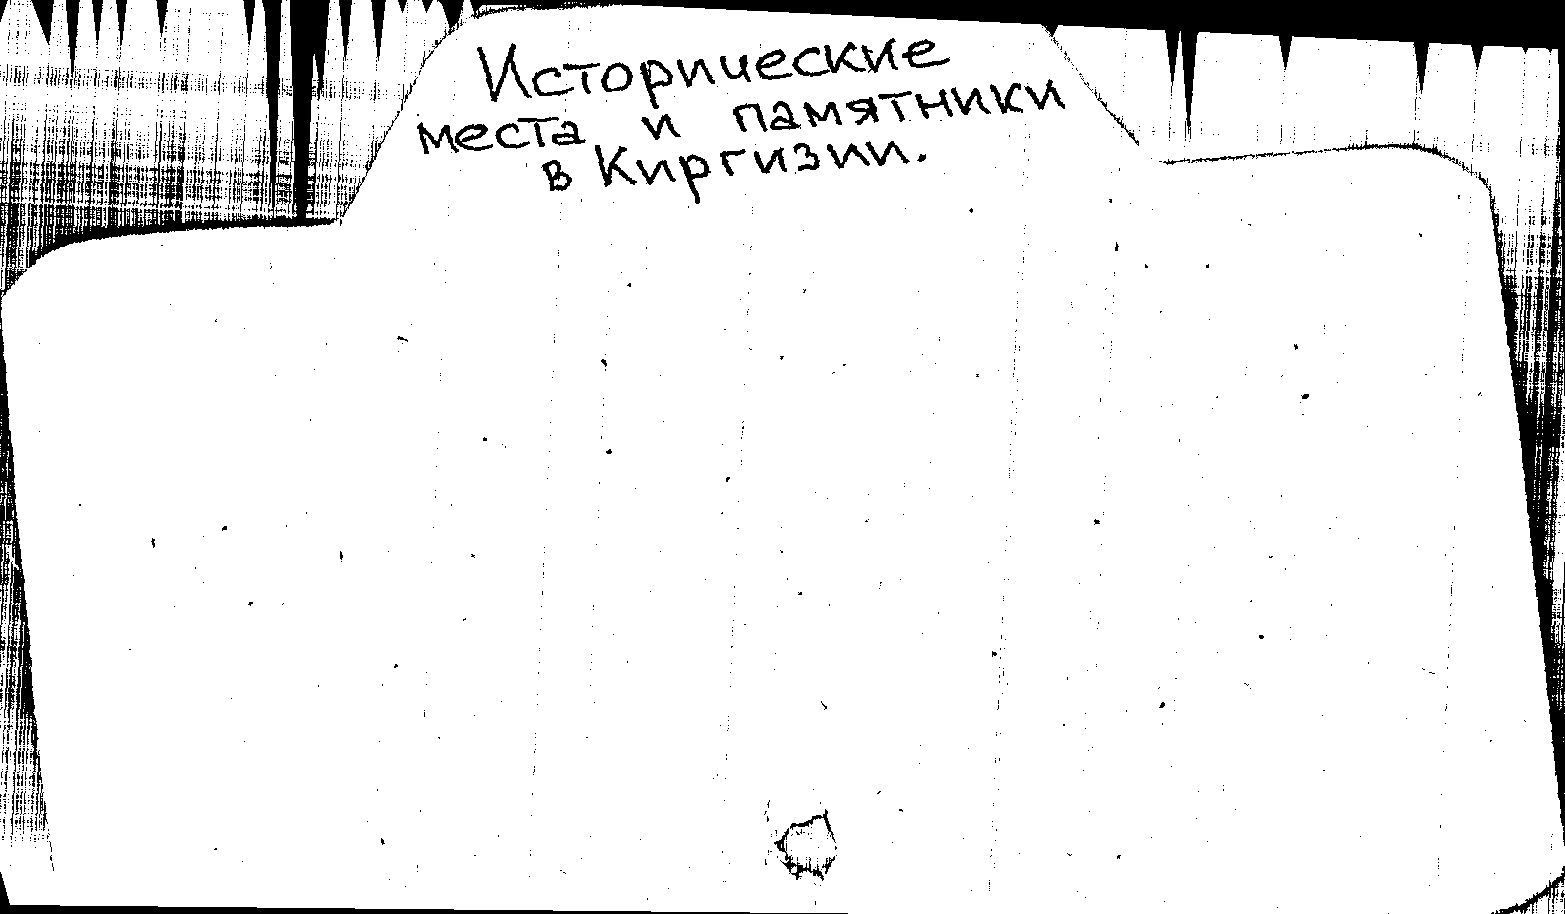 Исторические
места и памятники
в Киргизии.